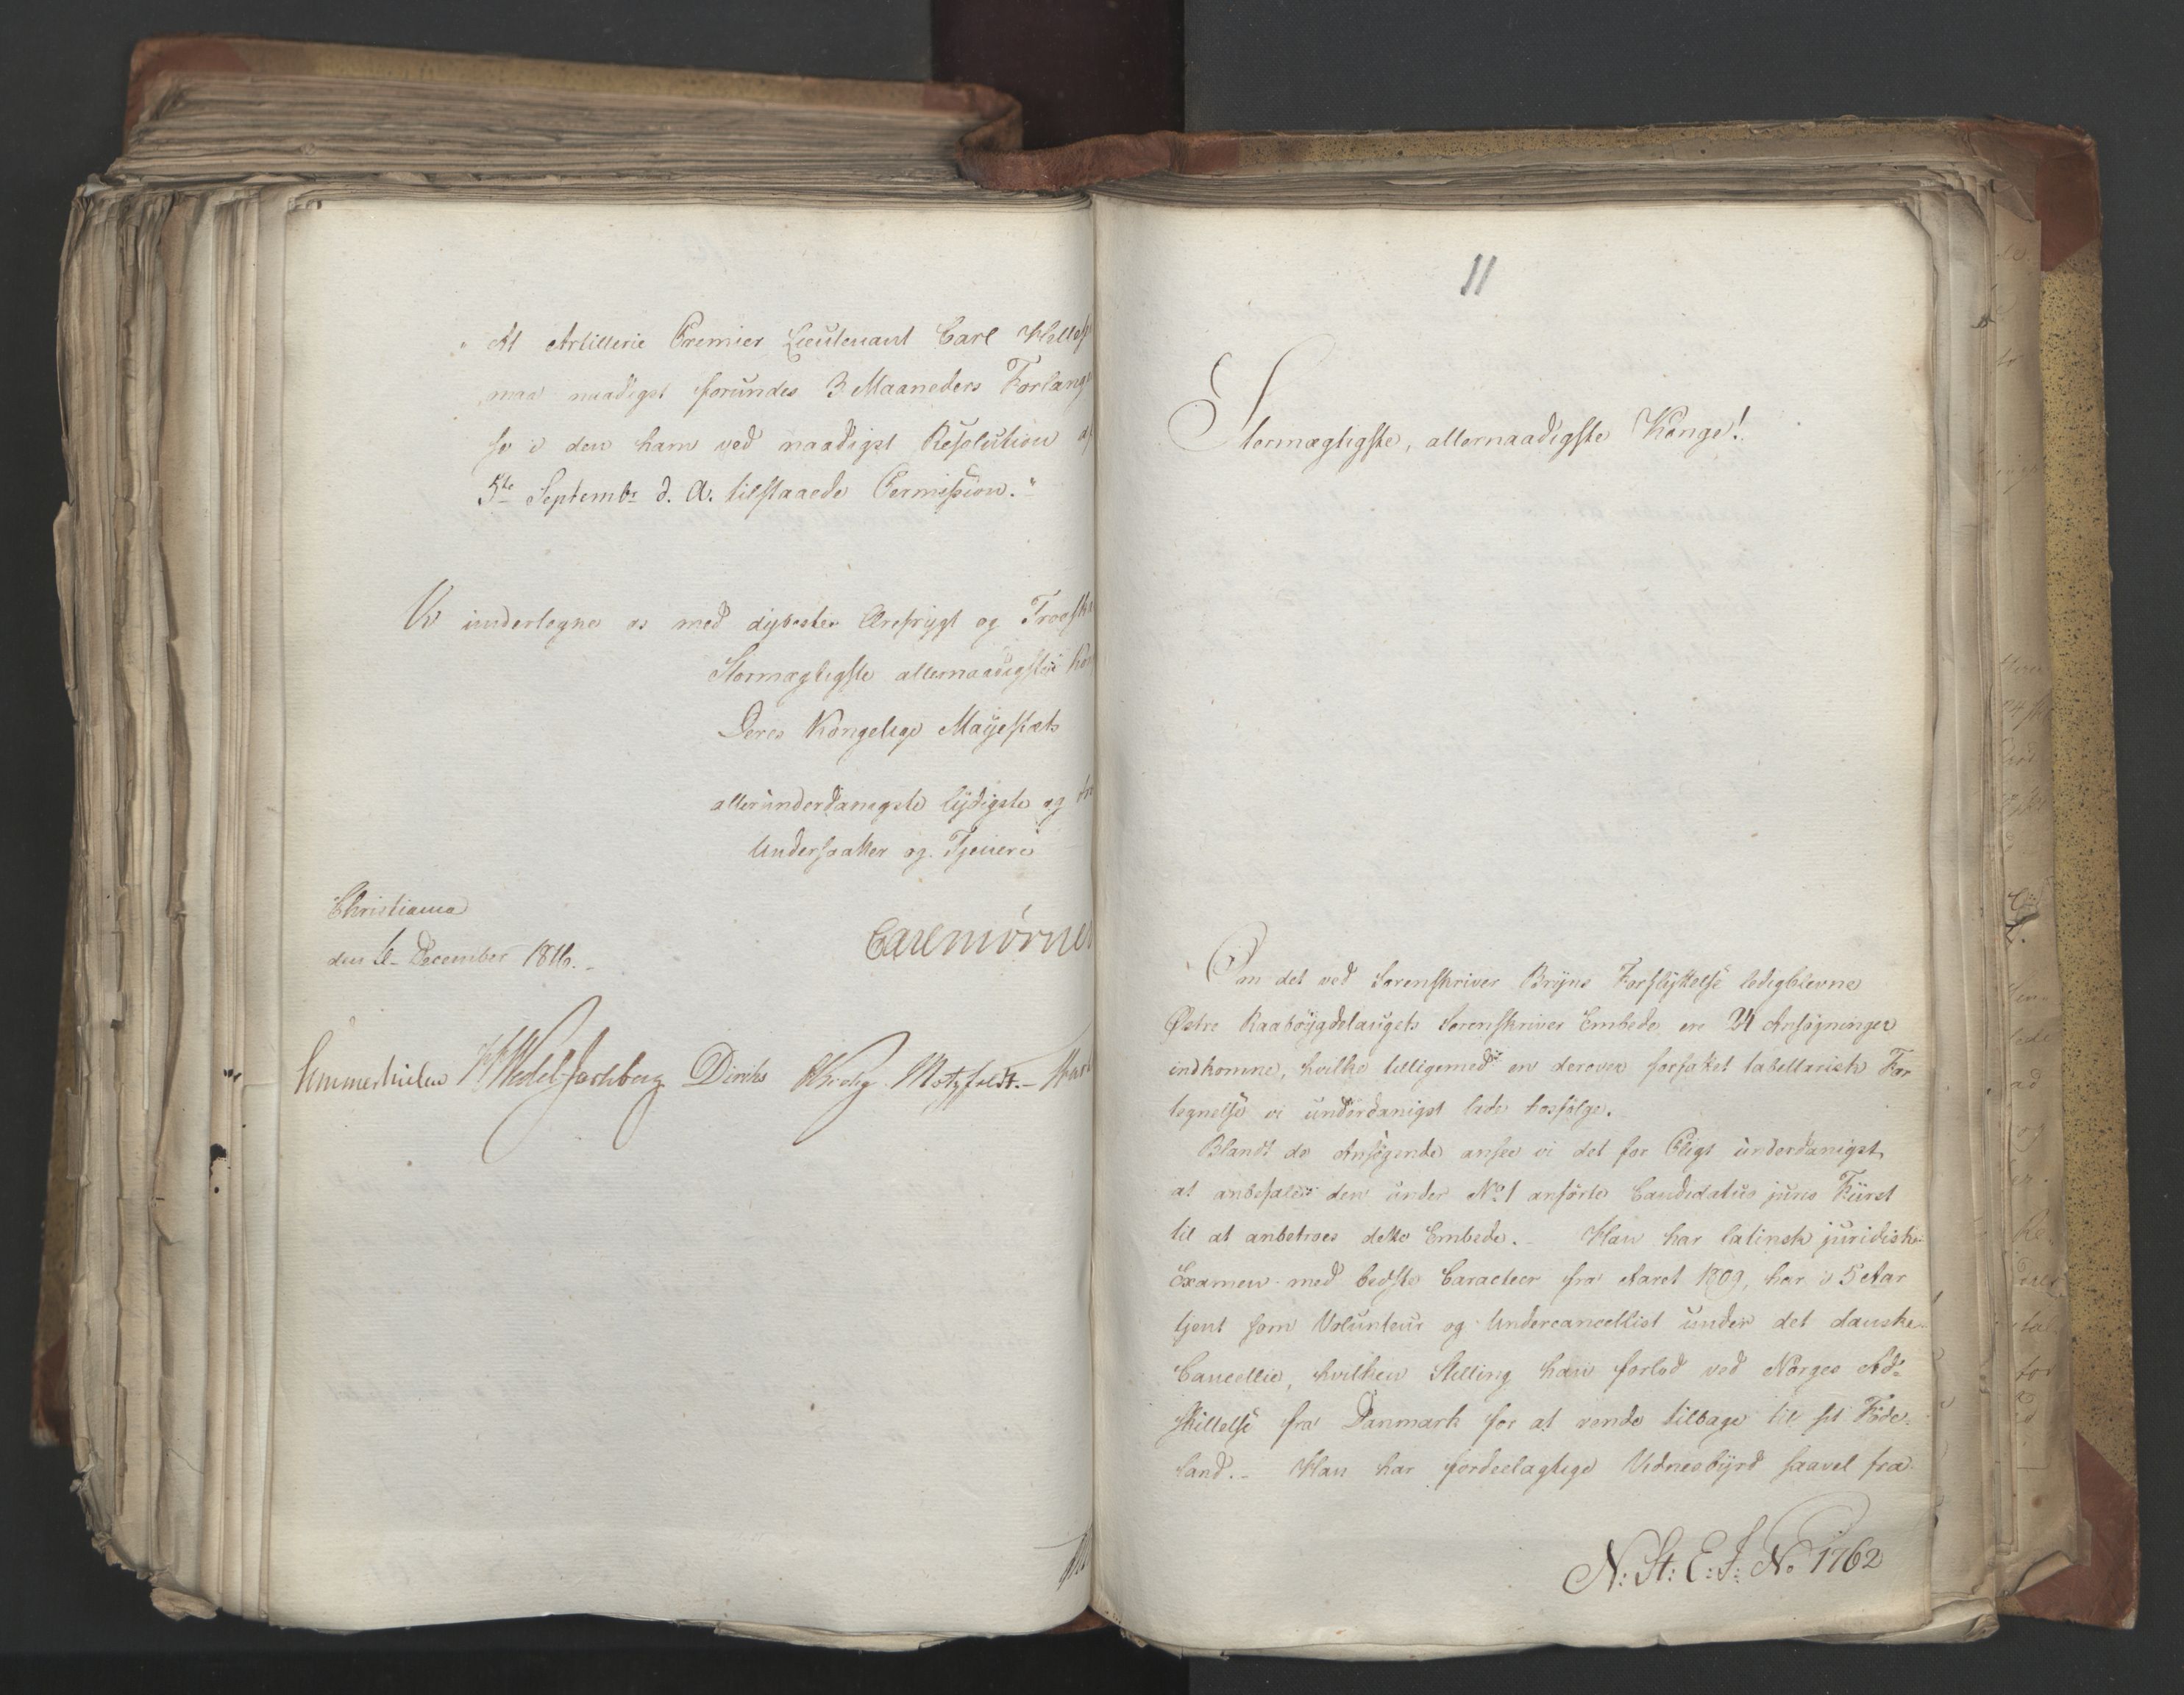 "At Artillerie Premier Lieutenant Carl
maa naadigst forundes 3 Maaneders Forlænge
se i den ham ved naadigst Resolution af
5te Septembr d. A. tilstaaede Permission."
Vi undertegne os med dybeste Ærefrygt og
Stormægtigste allernaadigste
Deres Kongelige Majestæts
allerunderdanigste lydigste og
Undersaatter og Tjenere
Christiania
den 6te December 1816.
Carl Mörner
Sommerhielm HWedel Jarlsberg Diriks Krog Motzfeldt.
11
Stormægtigste, allernaadigste Konge!
Om det ved Sorenskriver Bryns Forflyttelse ledigblevne
Østre Raabøygdelaugets Sorenskriver Embede ere 24 Ansøgninger
indkomne, hvilke tilligemed en derover forfattet tabellarisk For
tegnelse vi underdanigst lade hosfølge.
Blandt de Ansøgende ansee vi det for Pligt underdanigst
at anbefale den under No 1 anførte Candidatus juris Fürst
til at anbetroes dette Embede. - Han har latinsk juridisk
Examen med bedste Caracteer fra Aaret 1809, har i 5 Aar
tjent som Volunteur og Undercancellist under det danske
Cancellie, hvilken Stilling han forlod ved Norges Ad=
skillelse fra Danmark for at vende tilbage til sit Føde=
land. - Han har fordeelagtige Vidnesbyrd saavel fra
N: St: E: J: No 1762